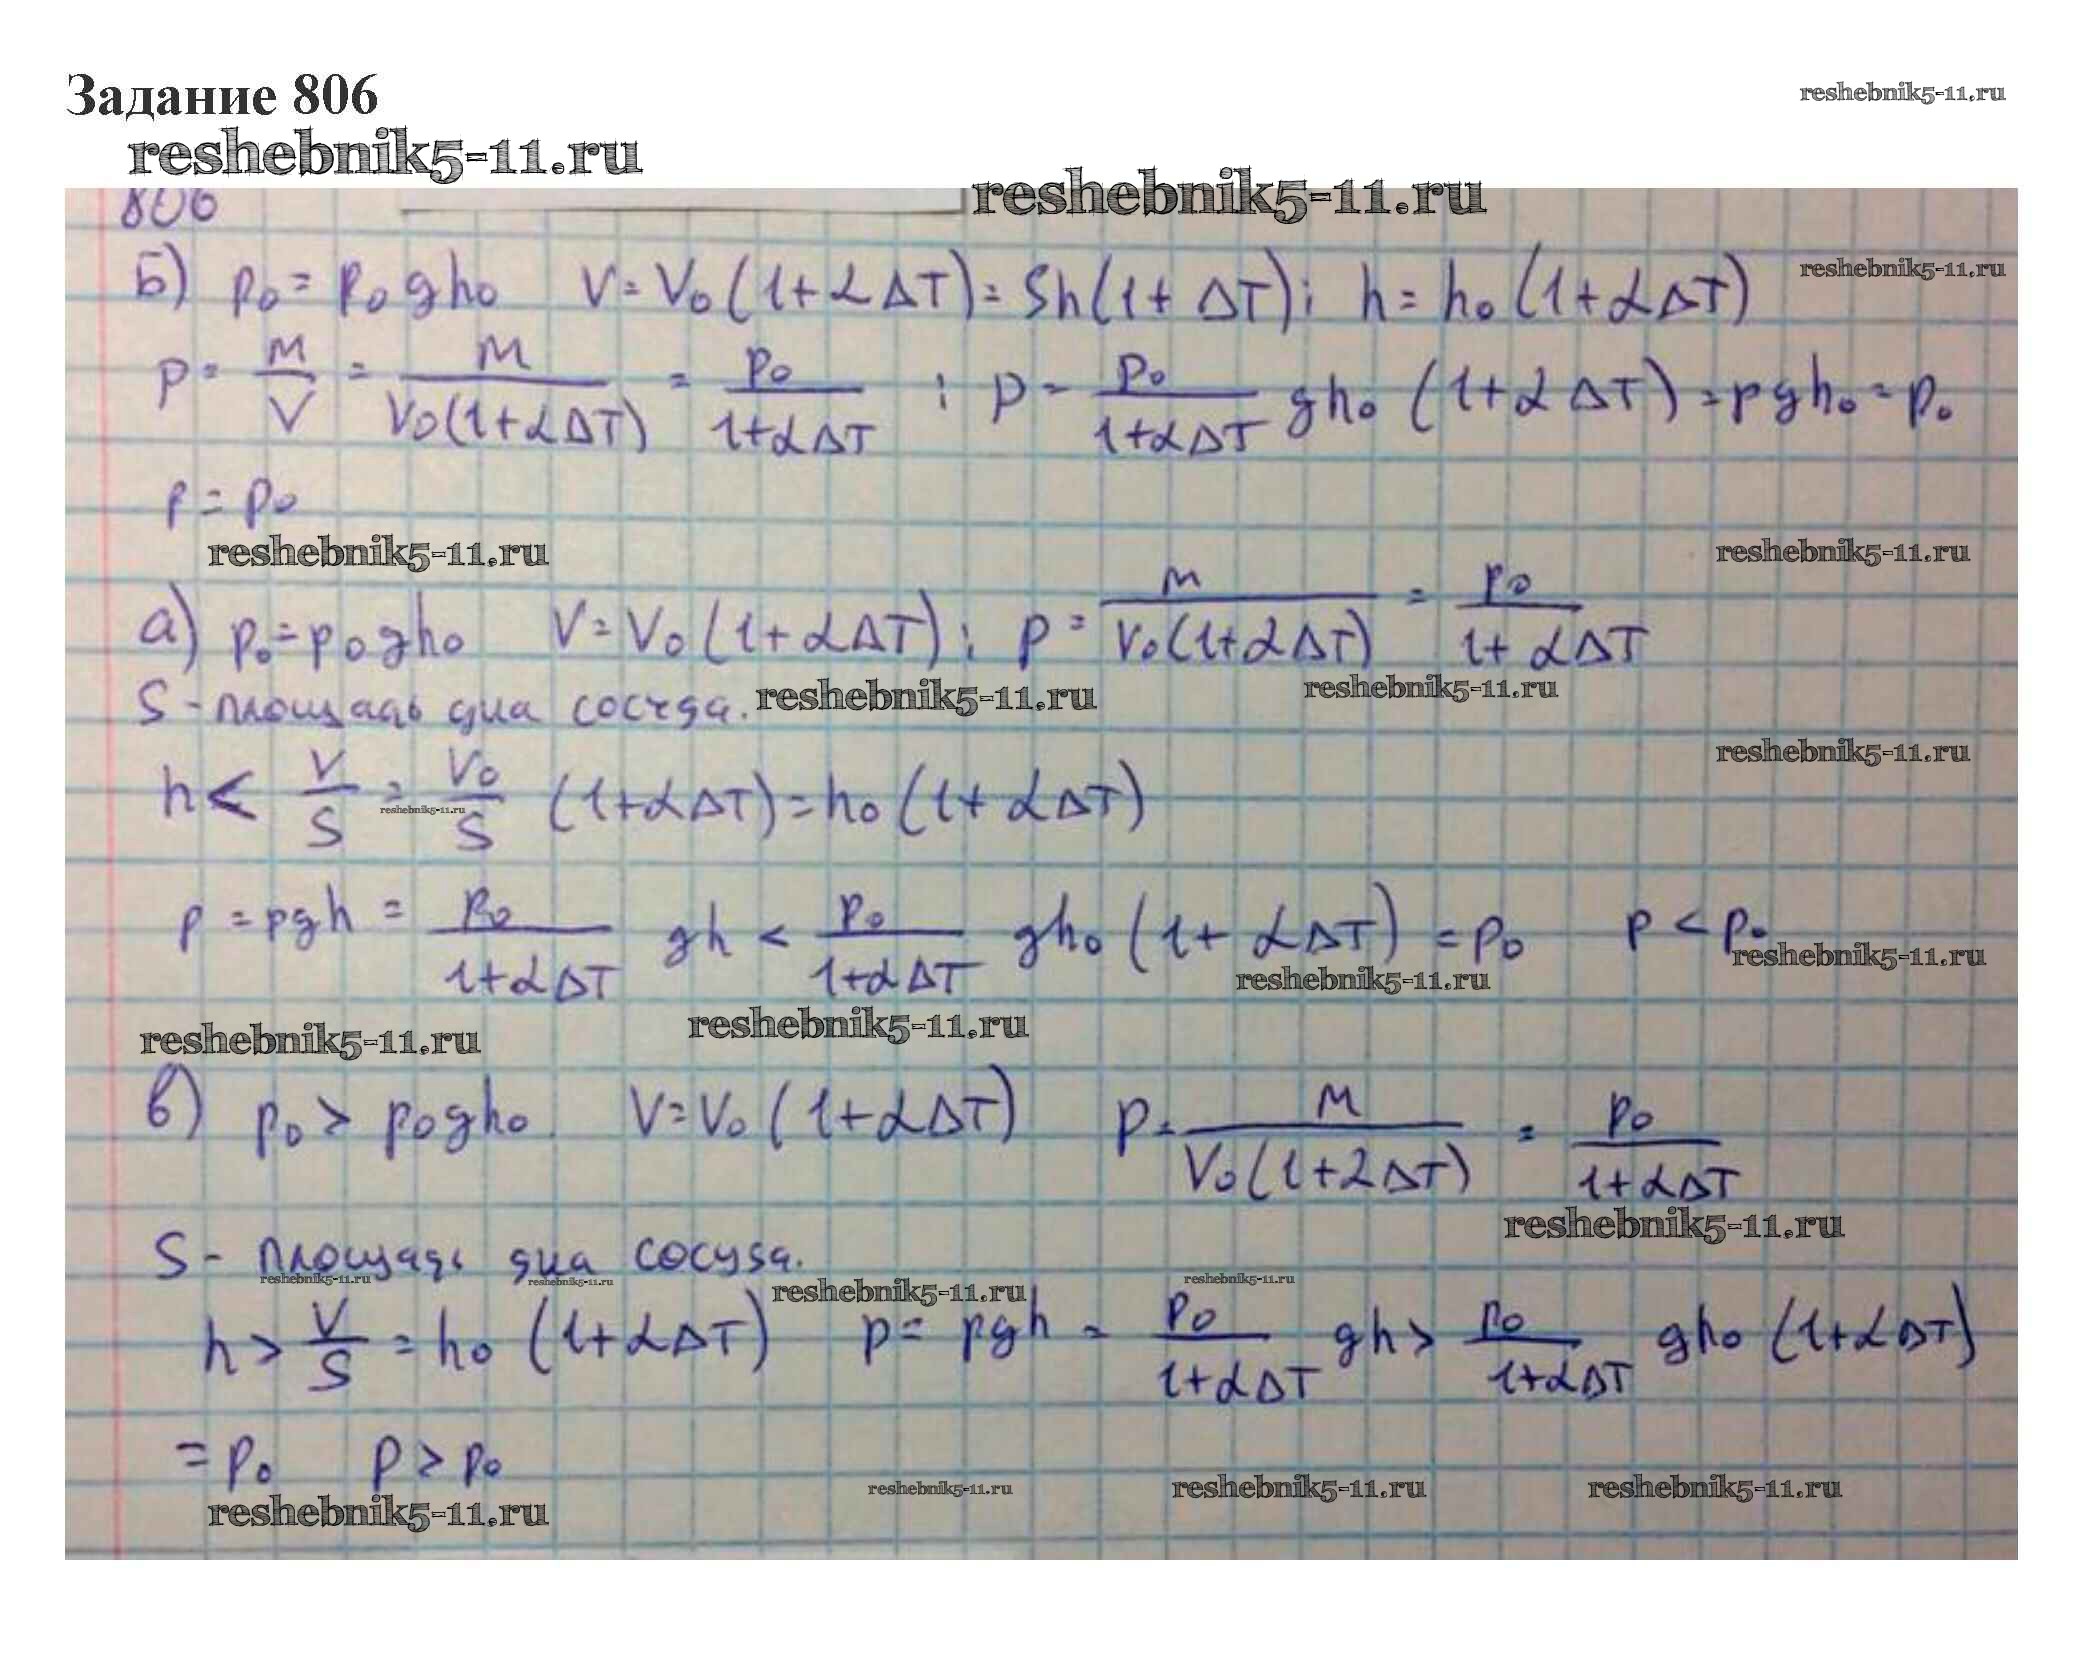 Задание 806
reshebnik5-11.ru
reshebnik5-11.ru
reshebnik5-11.ru
806
Б) p₀ = p₀gh₀ V = V₀(1+αΔT) = Sh(1+ΔT); h = h₀(1+αΔT)
reshebnik5-11.ru
p = M/V = M/(V₀(1+αΔT)) = p₀/(1+αΔT) ; p = p₀/(1+αΔT) gh₀ (1+αΔT) = pgh₀ = p₀
p = p₀
reshebnik5-11.ru reshebnik5-11.ru
а) p₀ = p₀gh₀ V = V₀(1+αΔT); p = M/(V₀(1+αΔT)) = p₀/(1+αΔT)
S - площадь дна сосуда. reshebnik5-11.ru reshebnik5-11.ru
reshebnik5-11.ru
h < V/S = V₀/S (1+αΔT) = h₀(1+αΔT)
reshebnik5-11.ru
p = pgh = p₀/(1+αΔT) gh < p₀/(1+αΔT) gh₀ (1+αΔT) = p₀ p < p₀
reshebnik5-11.ru reshebnik5-11.ru
reshebnik5-11.ru reshebnik5-11.ru
в) p₀ > p₀gh₀ V = V₀(1+αΔT) p = M/(V₀(1+2ΔT)) = p₀/(1+αΔT)
reshebnik5-11.ru
S - площадь дна сосуда.
reshebnik5-11.ru reshebnik5-11.ru reshebnik5-11.ru reshebnik5-11.ru
h > V/S = h₀ (1+αΔT) p = pgh = p₀/(1+αΔT) gh > p₀/(1+αΔT) gh₀ (1+αΔT)
= p₀ p > p₀
reshebnik5-11.ru reshebnik5-11.ru reshebnik5-11.ru reshebnik5-11.ru